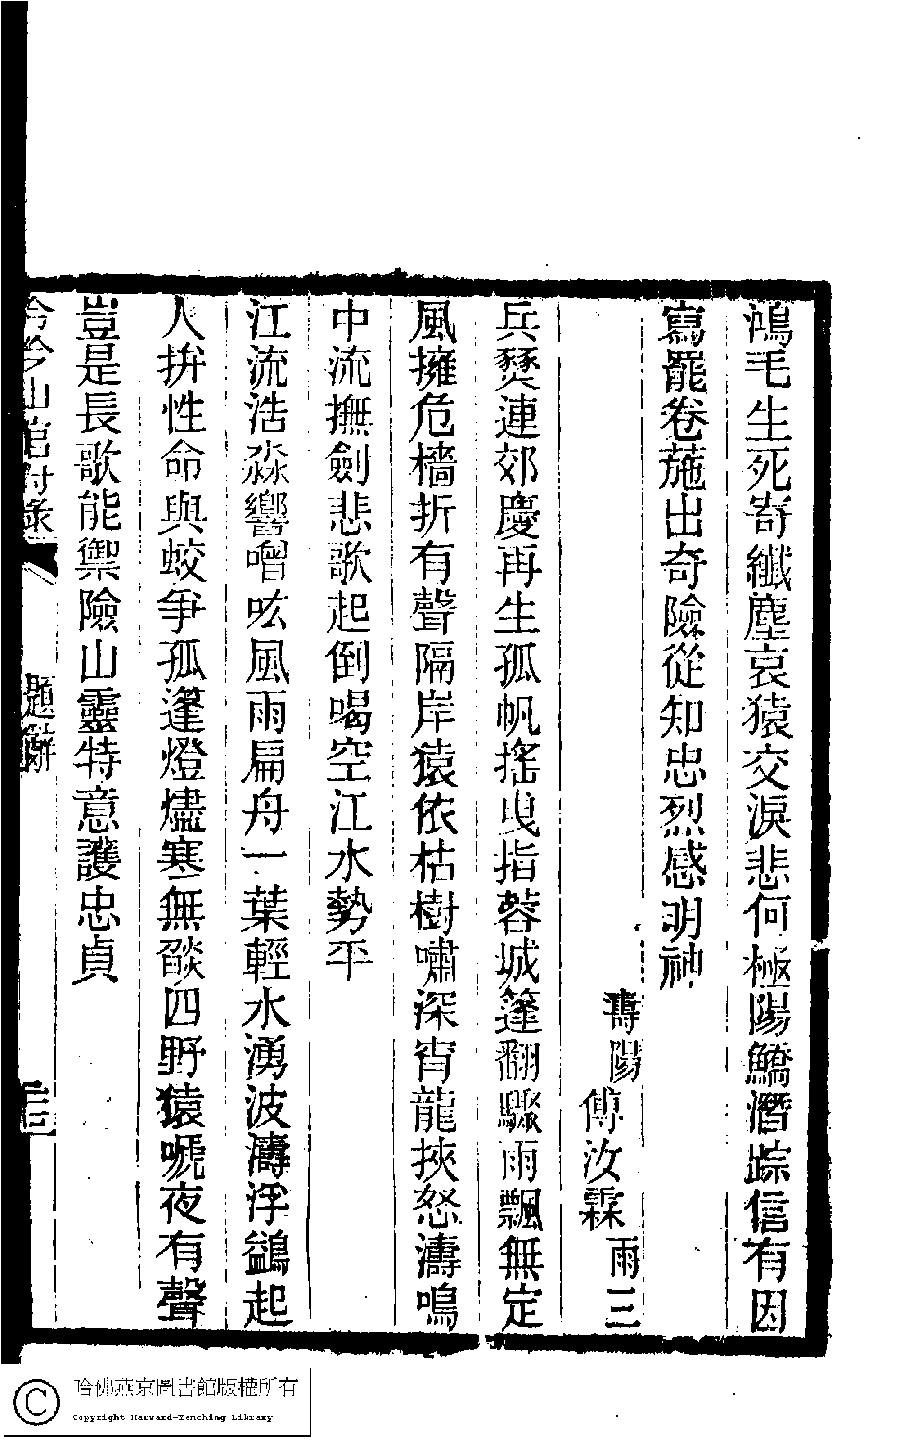 鴻毛生死寄纖塵哀猿交淚悲何極陽鱎潛踪信有因
寫罷卷葹出奇險從知忠烈感明神
壽陽傅汝霖雨三
兵燹連郊慶再生孤帆搖曳指蓉城篷翻驟雨飄無定
風擁危檣折有聲隔岸猿依枯樹嘯深宵龍挾怒濤鳴
中流撫劍悲歌起倒喝空江水勢平
江流浩淼響噌吰風雨扁舟一葉輕水湧波濤浮鷁起
人拚性命與蛟爭孤篷燈燼寒無燄四野猿嗁夜有聲
豈是長歌能禦險山靈特意護忠貞
山館付錄 題辭
哈佛燕京圖書館版權所有
Copyright Harvard-Yenching Library